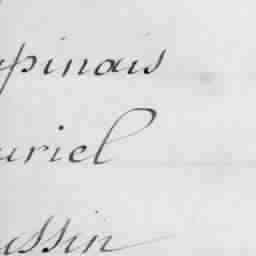 pinais
uriel
ussin